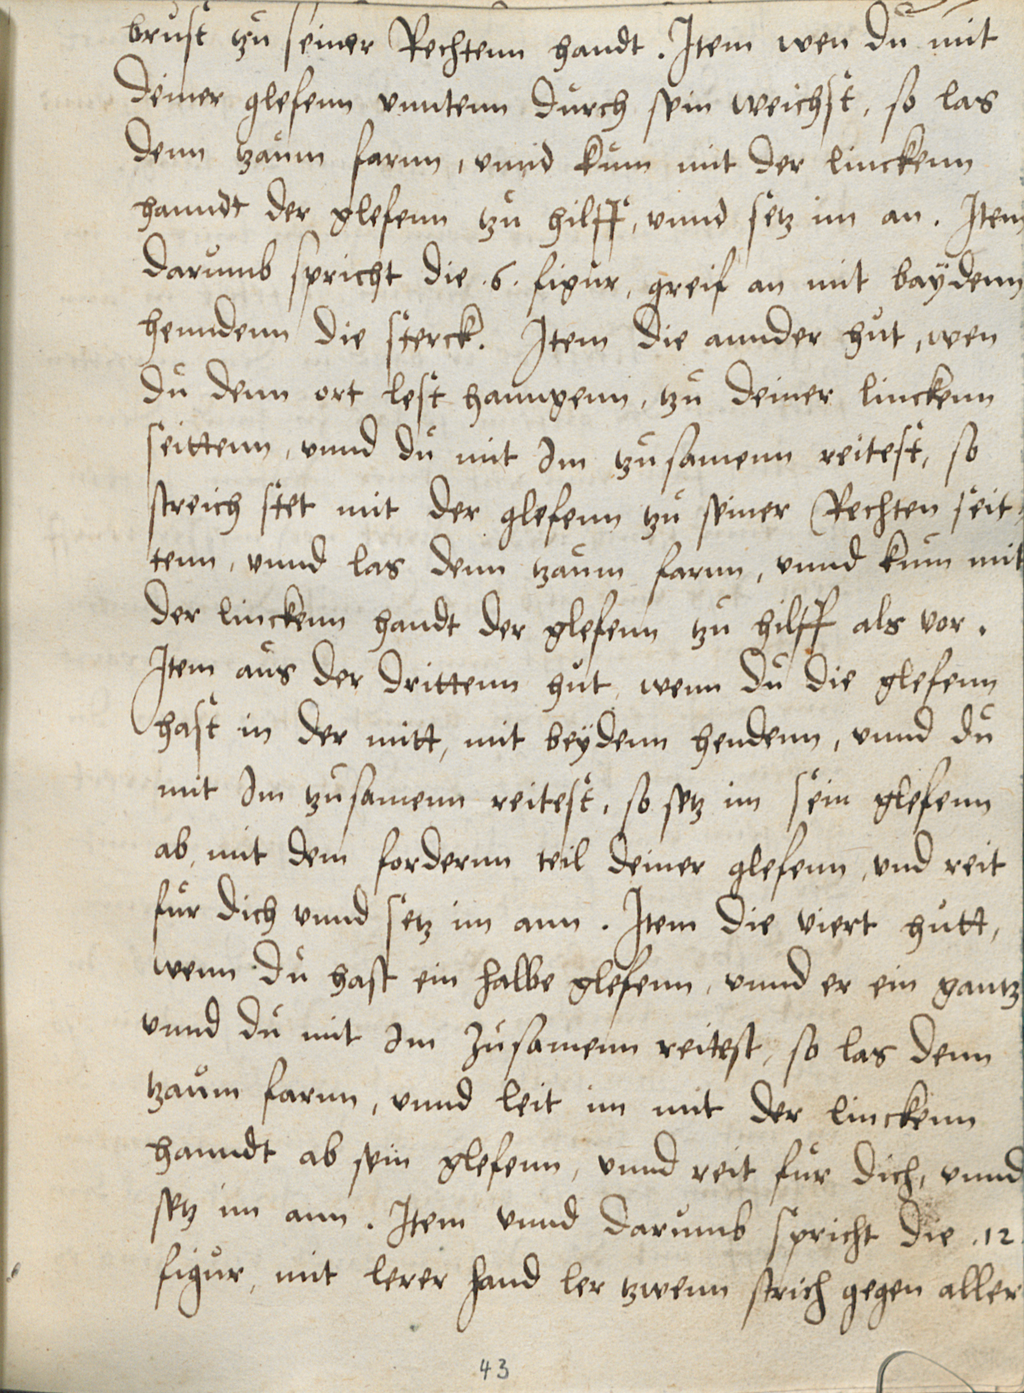 brust tzu seiner Rechtenn handt. Item wen du mit
deiner glefenn vnntenn durch sein weichst, so las
denn tzaum farnn, vnnd kum mit der linckenn
hanndt der glefenn tzu hilff, vnnd setz im an. Item
darumb spricht die .6. figur, greif an mit baÿdenn
henndenn die sterck. Item die annder hut, wen
du denn ort lest hanngenn, tzu deiner linckenn
seittenn, vnnd du mit Im tzusamenn reitest, so
streich stet mit der glefenn tzu seiner Rechten seit,
tenn, vnnd las denn tzaum farnn, vnnd kum mit
der linckenn handt der glefenn tzu hilff als vor.
Item aus der drittenn hut, wenn du die glefenn
hast in der mitt, mit beÿdenn hendenn, vnnd du
mit Im tzusamenn reitest, so setz im sein glefenn
ab, mit dem fordernn teil deiner glefenn, vnd reit
fur dich vnnd setz im ann. Item die viert hutt,
wenn du hast ein halbe glefenn, vnnd er ein gantz
vnnd du mit Im zusamenn reitest, so las denn
tzaum farnn, vnnd leit im mit der linckenn
hanndt ab sein glefenn, vnnd reit fur dich, vnnd
setz im ann. Item vnnd darumb spricht die .12.
figur, mit lerer hand ler tzwenn strich gegen aller
43